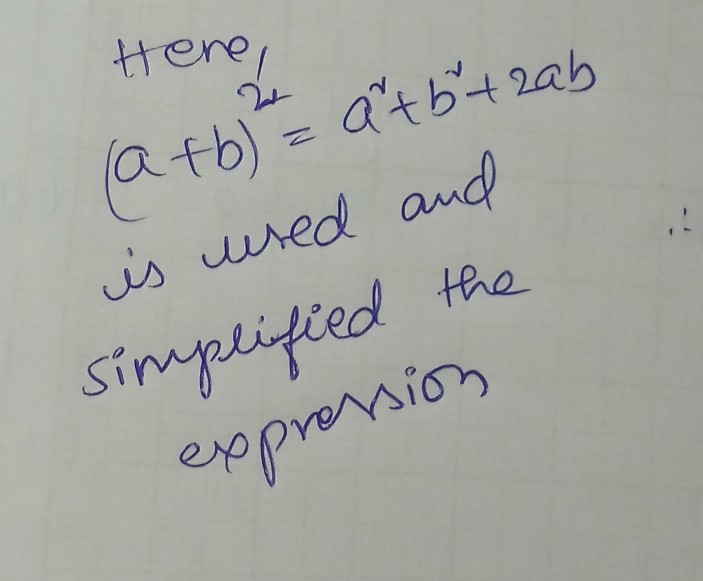 Here,
(a+b)² = a²+b²+2ab
is used and
∴
simplified the
expression